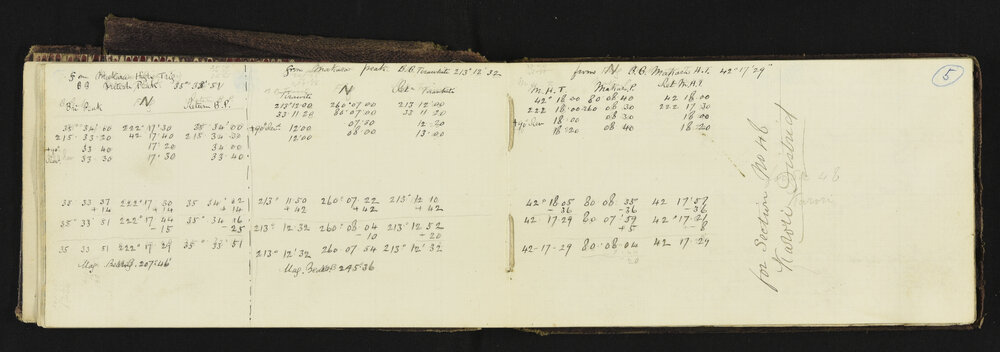 from Makara High Trig
B.B. British Peak 35° 33' 51
Bri. Peak N Return B.P.
35° 34' 00 222° 17' 30 35 34' 00
215 33 20 42 17 40 215 34 30
33 40 17' 20 34 00
33 30 17' 30 33 40
35 33 37 222° 17' 30 35 34' 02
+14 +14 +14
35° 33' 51 222° 17 44 35 34 16
-15 -25
35 33 51 222° 17' 29 35° 33' 51
Mag. 207° 46'
from Makara Peak B.B. Terawhite 213° 12' 32
Terawite N Ret Terawhite
213° 12' 00 260° 07 00 213 12 00
33 11 20 80 07 00 33 11 20
12 00 07 30 12 20
12 00 08 00 13 00
213° 11 50 260° 07 22 213° 12 10
+42 +42 +42
213° 12 32 260° 08 04 213° 12 52
-10 -20
213° 12 32 260 07 54 213° 12' 32
Mag. 245° 36
from N B.B. Makara H.T. 42° 17' 29"
M.H.T. Makara P. Ret M.H.T
42° 18 00 80 08 40 42 18 00
222 18 00 260 08 30 222 17 30
18 00 08 30 18 00
18 20 08 40 18 20
42° 18 05 80 08 35 42 17' 57
-36 -36 -36
42 17 29 80 07' 59 42° 17' 21
+5 +8
42-17-29 80-08-04 42 17-29
5
for Section No 46
Karori District